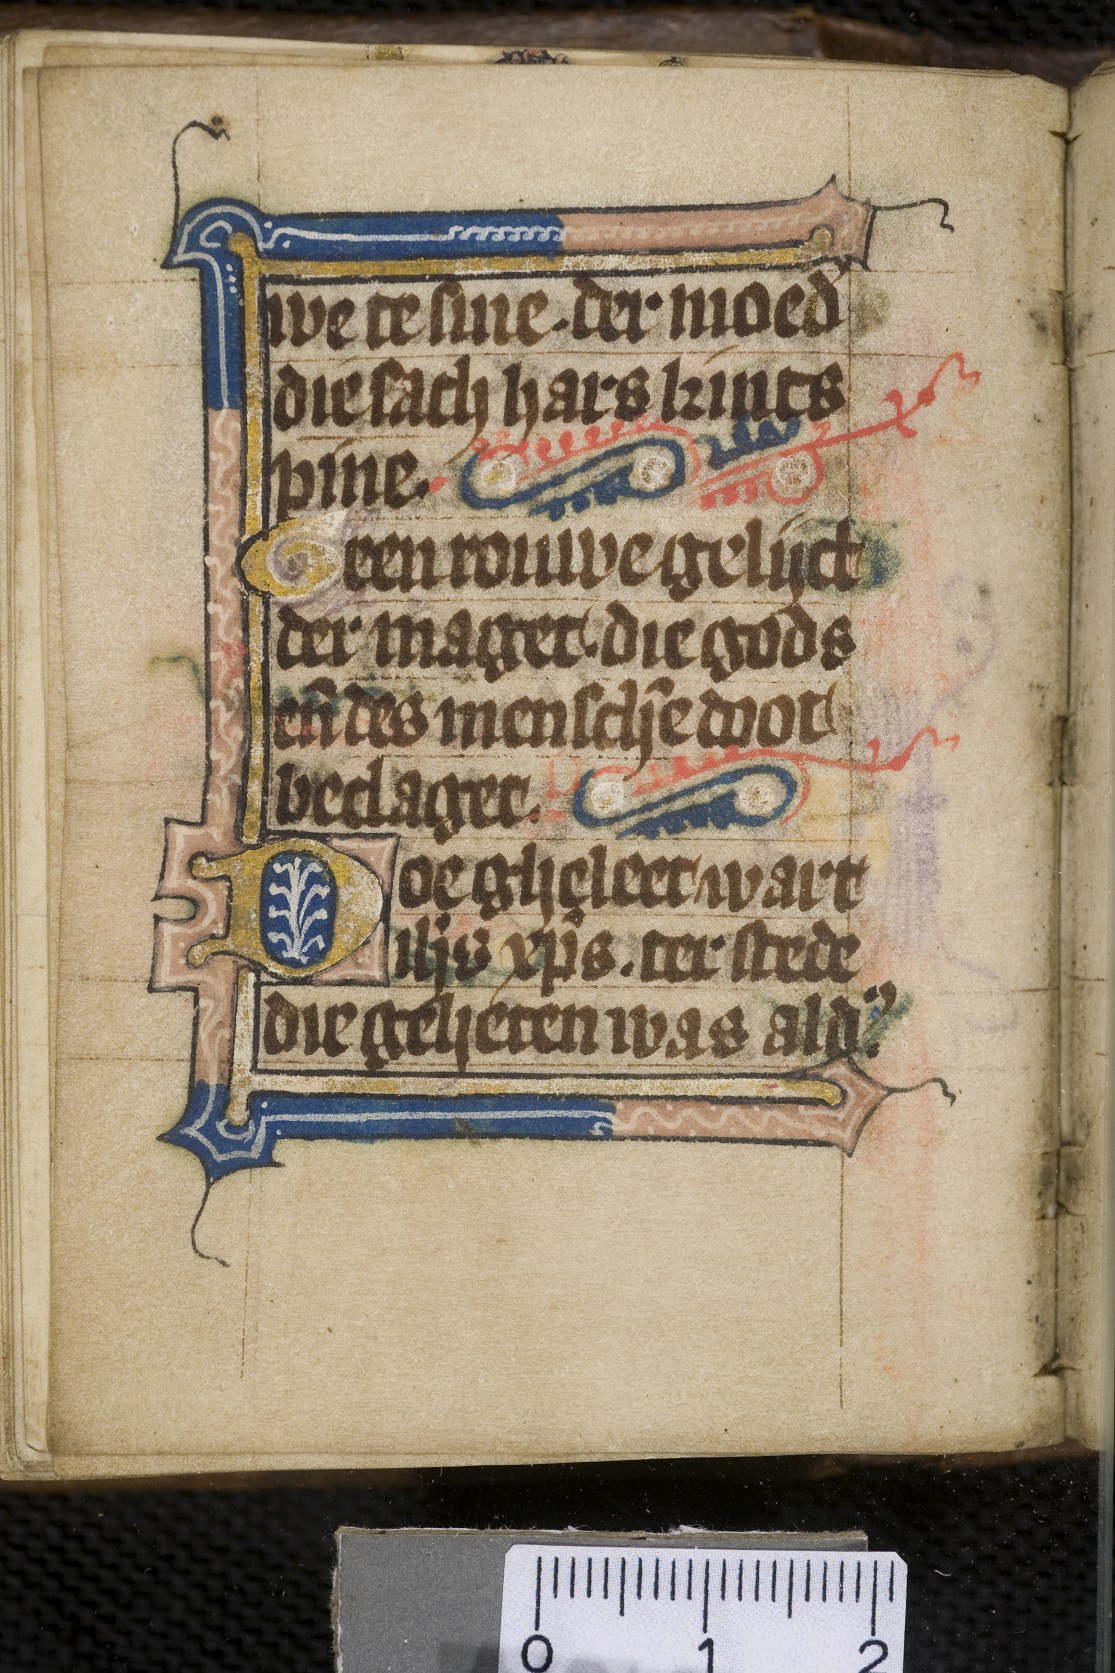 we te sine. der moed'
die sach hars kints
pine.
Geen rouwe gelijct
der maget. die gods
en̄ des menschē doot
beclaget.
Doe gheleet wart
ih̄s xp̄s. ter stede
die geheten was ald'
0 1 2